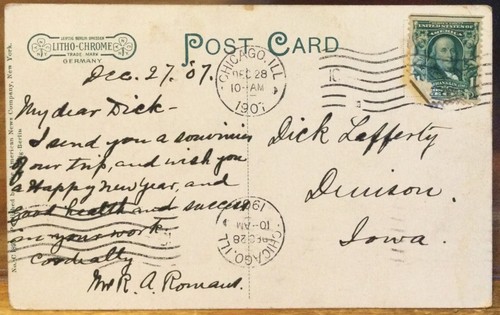 LEIPZIG BERLIN DRESDEN
LITHO-CHROME
TRADE MARK
GERMANY
POST CARD
Dec. 27. '07.
My dear Dick –
I send you a souvenir
of our trip, and wish you
a Happy new year, and
good health and success
in your work.
Cordially
Mrs R. A. Romans.
CHICAGO, ILL
DEC 28
10-AM
1907
UNITED STATES OF
AMERICA
FRANKLIN
Dick Lafferty
Denison.
Iowa.
CHICAGO, ILL
DEC 28
10-AM
190
American News Company, New York.
Berlin